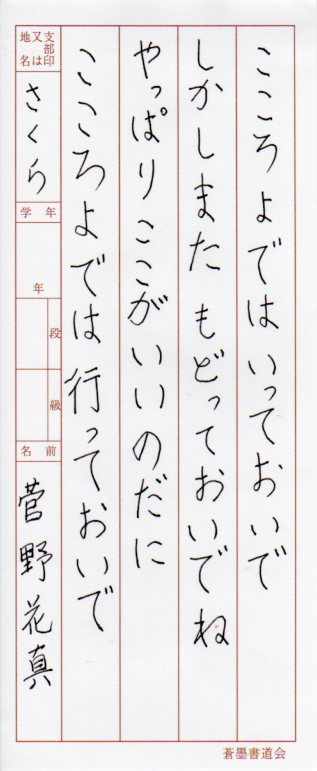 こころよでは いっておいで
しかしまた もどっておいでね
やっぱりここが いいのだに
こころよでは 行っておいで
支部印
又は
地名
さくら
学年
年
段
級
名前
菅野花真
蒼墨書道会